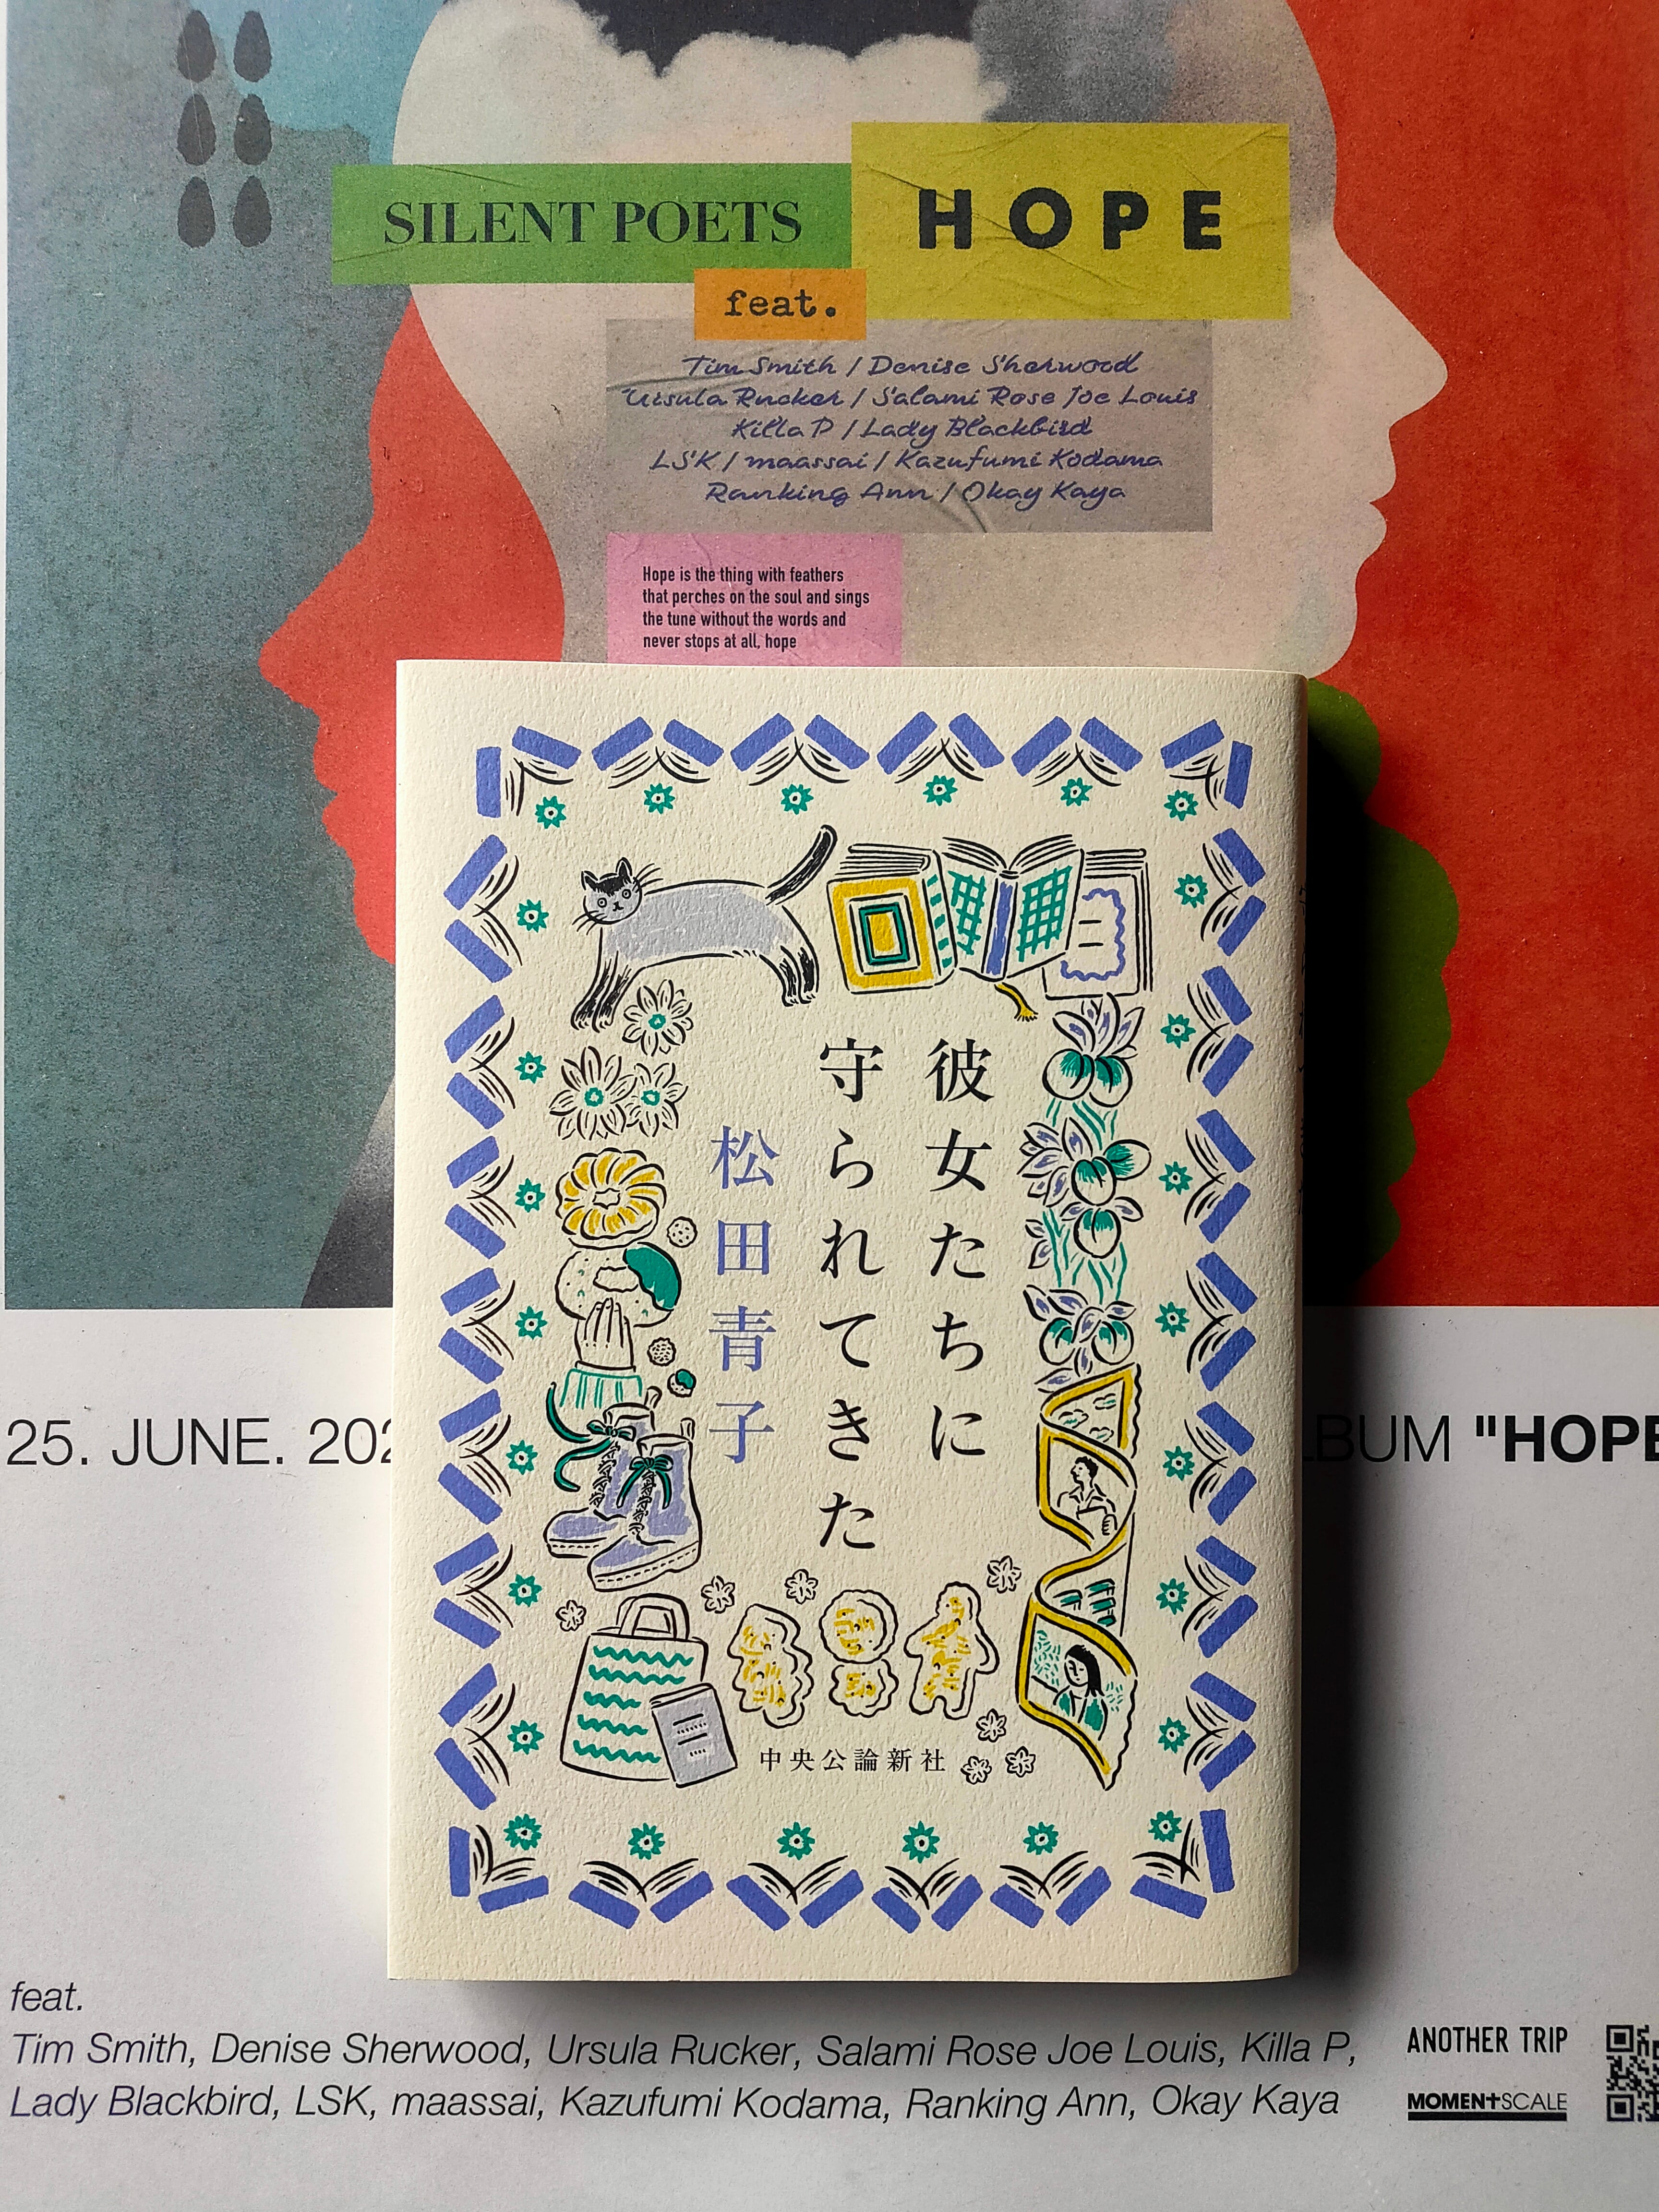 SILENT POETS
HOPE
feat.
Tim Smith / Denise Sherwood
Ursula Rucker / Salami Rose Joe Louis
Killa P / Lady Blackbird
LSK / maassai / Kazufumi Kodama
Ranking Ann / Okay Kaya
Hope is the thing with feathers
that perches on the soul and sings
the tune without the words and
never stops at all, hope
彼女たちに
守られてきた
松田青子
中央公論新社
25. JUNE. 202
BUM "HOPE
feat.
Tim Smith, Denise Sherwood, Ursula Rucker, Salami Rose Joe Louis, Killa P,
Lady Blackbird, LSK, maassai, Kazufumi Kodama, Ranking Ann, Okay Kaya
ANOTHER TRIP
MOMENTSCALE